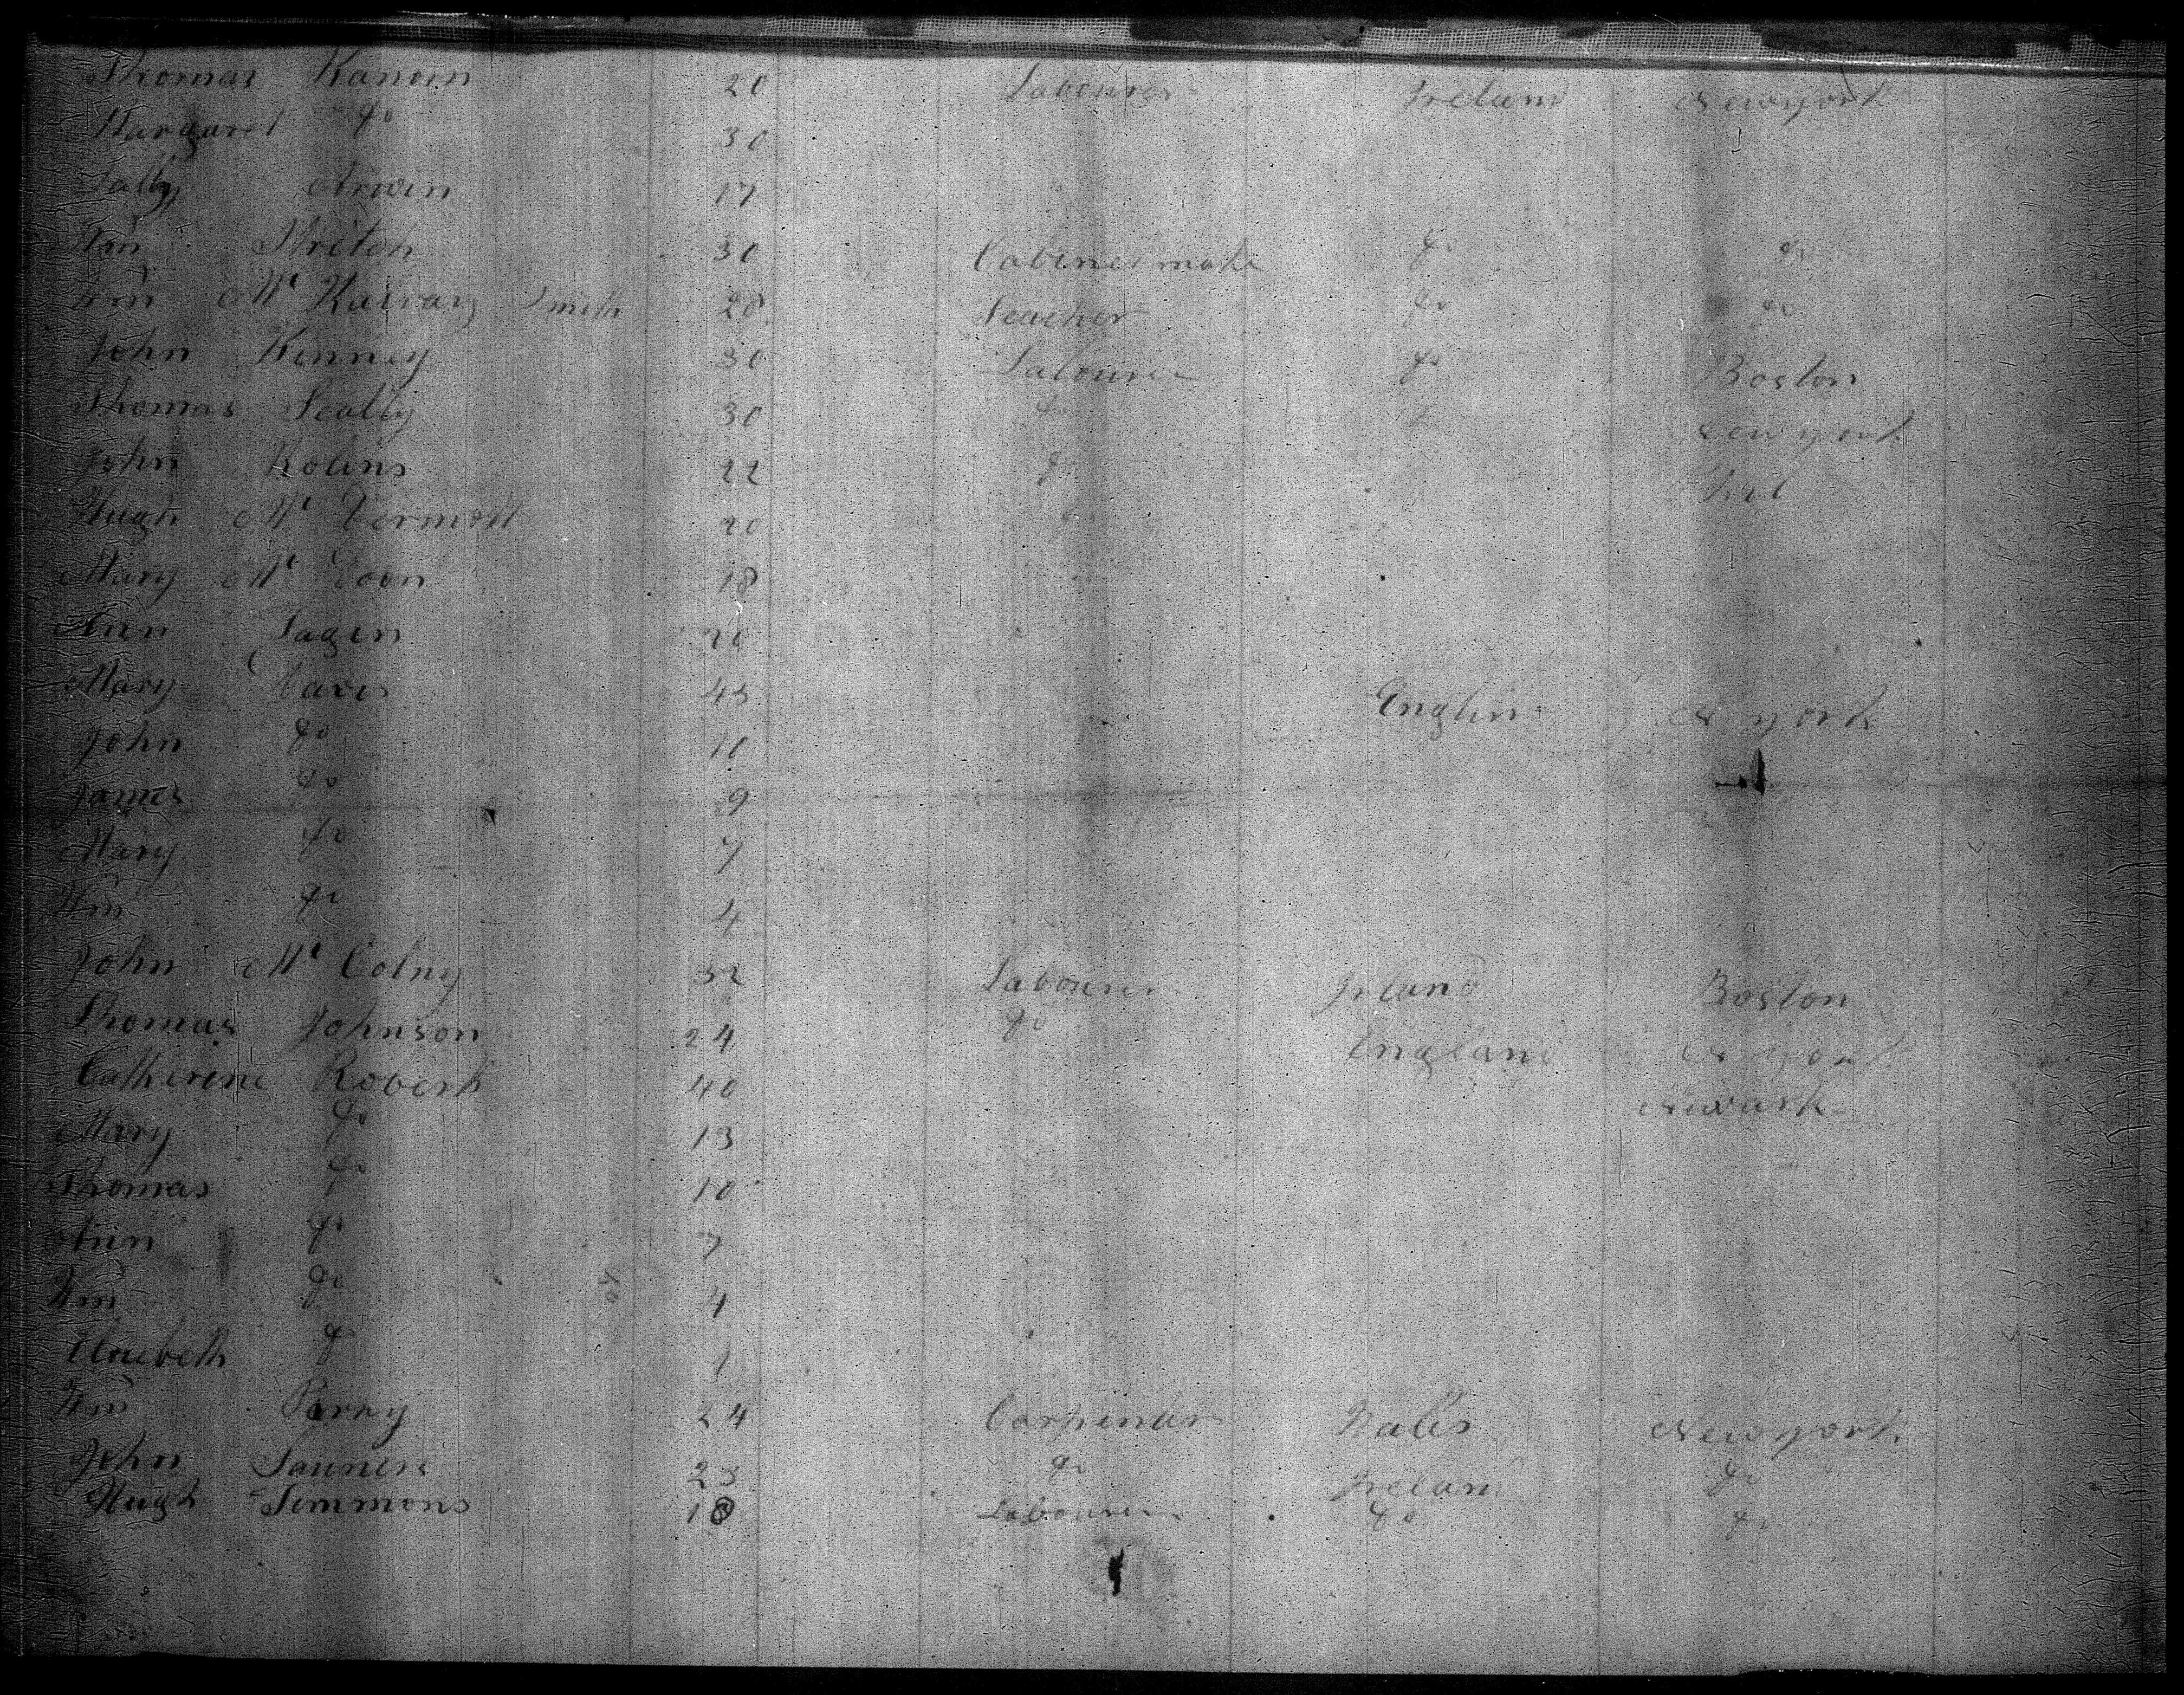 Thomas Kanoen 20 Labourer Ireland Newyork
Margaret Do 30
Sally Arwin 17
Wm Briton 30 Cabinet make Do Do
Wm Mc Smith 28 Teacher Do Do
John Kenney 30 Labourer Do Boston
Thomas Scally 30 Do Newyork
John Rolins 22 Do
Hugh Mc Dermott 20
Mary Mc 18
Ann 20
Mary Davis 45 Englin N york
John Do 10
James Do 9
Mary Do 7
Wm Do 4
John Mc Colny 32 Labourer Irland Boston
Thomas Johnson 24 Do England N york
Catherine Roberts 40 Newark
Mary Do 13
Thomas Do 10
Ann Do 7
Wm Do 4
Do 1
Wm Perry 24 Carpenter Wales Newyork
John 23 Do Ireland Do
Hugh Simmons 18 Labourer Do Do